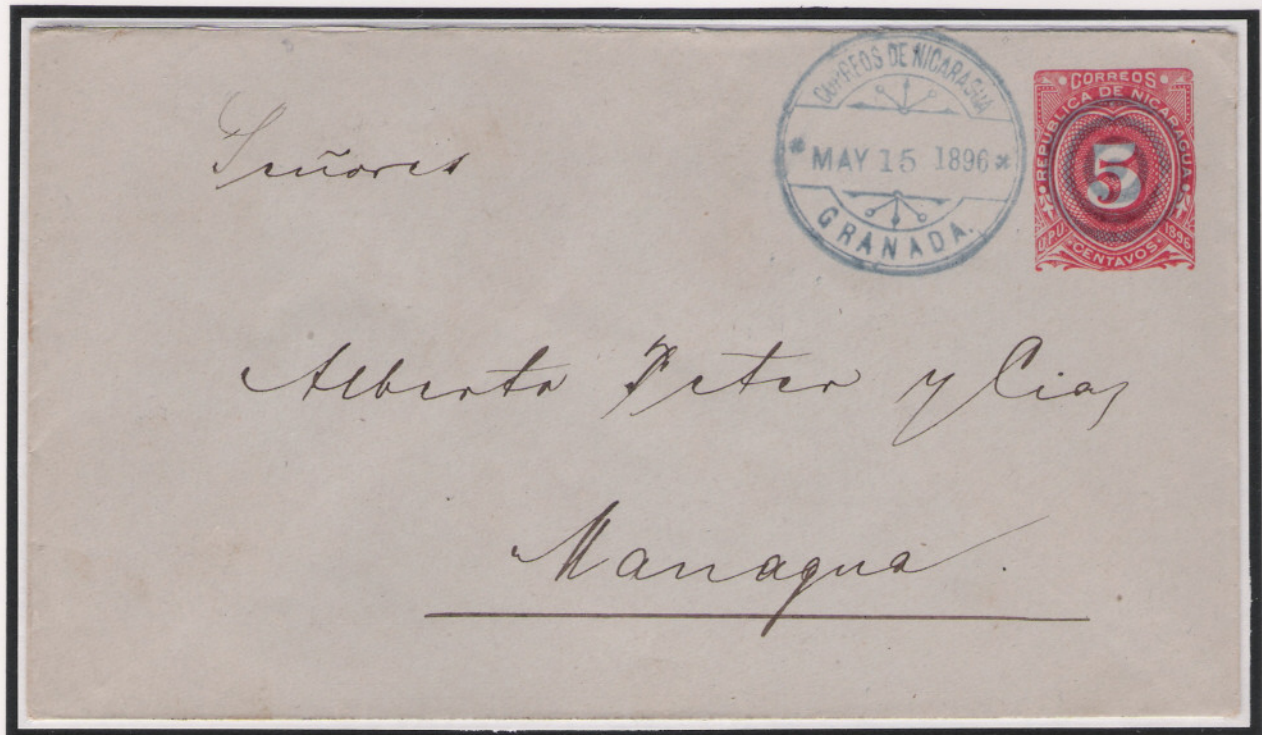 CORREOS DE NICARAGUA
MAY 15 1896
GRANADA.
CORREOS
REPUBLICA DE NICARAGUA
5
UPU 1896
CENTAVOS
Señores
Alberto Peter y Cia,
Managua.